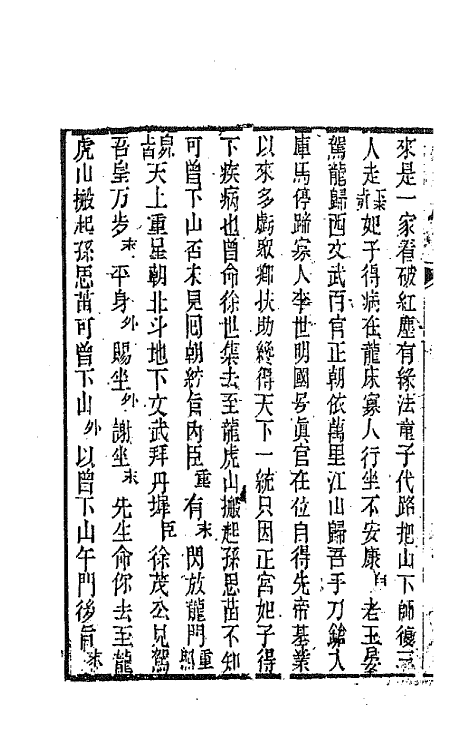 來是一家看破紅塵有緣法童子代路把山下師復三
人走末前妃子得病在龍床寡人行坐不安康白老王晏
駕龍歸西文武百官正朝依萬里江山歸吾手刀鎗入
庫馬停蹄寡人李世明國号真官在位自得先帝基業
以來多虧敬鄉扶助纔得天下一統只因正宮妃子得
下疾病也曾命徐世勣去至龍虎山搬起孫思苗不知
可曾下山否未見回朝紡旨內臣重有末閃放龍門重照
旨天上重星朝北斗地下文武拜丹墀臣徐茂公見駕
吾皇万步末平身外賜坐外謝坐末先生命你去至龍
虎山搬起孫思苗可曾下山外以曾下山午門後旨末